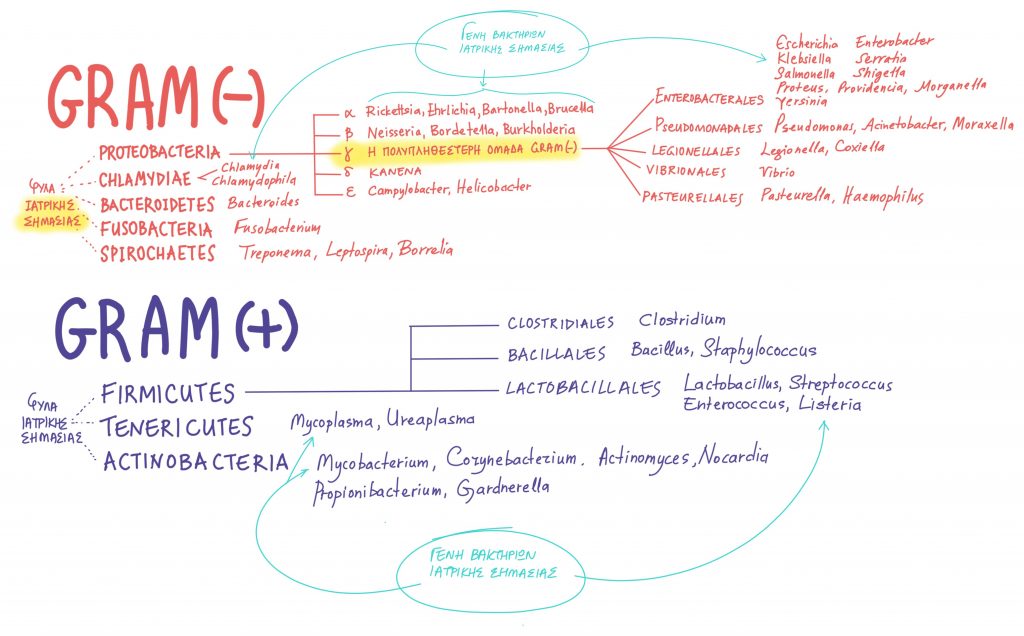 ΓΕΝΗ ΒΑΚΤΗΡΙΩΝ
ΙΑΤΡΙΚΗΣ ΣΗΜΑΣΙΑΣ
Escherichia Enterobacter
Klebsiella Serratia
Salmonella Shigella
Proteus, Providencia, Morganella
Yersinia
GRAM (-)
α Rickettsia, Ehrlichia, Bartonella, Brucella
β Neisseria, Bordetella, Burkholderia
γ Η ΠΟΛΥΠΛΗΘΕΣΤΕΡΗ ΟΜΑΔΑ GRAM(-)
δ ΚΑΝΕΝΑ
ε Campylobacter, Helicobacter
ENTEROBACTERALES
PSEUDOMONADALES Pseudomonas, Acinetobacter, Moraxella
LEGIONELLALES Legionella, Coxiella
VIBRIONALES Vibrio
PASTEURELLALES Pasteurella, Haemophilus
ΦΥΛΑ
ΙΑΤΡΙΚΗΣ
ΣΗΜΑΣΙΑΣ
PROTEOBACTERIA
CHLAMYDIAE
Chlamydia
Chlamydophila
BACTEROIDETES Bacteroides
FUSOBACTERIA Fusobacterium
SPIROCHAETES Treponema, Leptospira, Borrelia
GRAM (+)
CLOSTRIDIALES Clostridium
BACILLALES Bacillus, Staphylococcus
LACTOBACILLALES Lactobacillus, Streptococcus
Enterococcus, Listeria
ΦΥΛΑ
ΙΑΤΡΙΚΗΣ
ΣΗΜΑΣΙΑΣ
FIRMICUTES
TENERICUTES Mycoplasma, Ureaplasma
ACTINOBACTERIA Mycobacterium, Corynebacterium. Actinomyces, Nocardia
Propionibacterium, Gardnerella
ΓΕΝΗ ΒΑΚΤΗΡΙΩΝ
ΙΑΤΡΙΚΗΣ ΣΗΜΑΣΙΑΣ